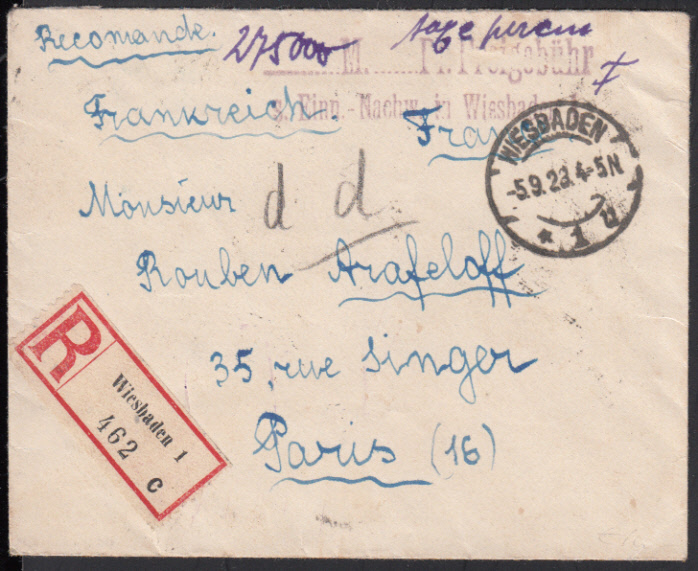 Recomandé. 275000 taxe percue
M. Pf. Freigebühr
Frankreich. lt. Einn.-Nachw. in Wiesbaden
France
WIESBADEN
-5.9.23.4-5N
* 1 d
Monsieur d d
Rouben Arafeloff
35, rue Singer
Paris (16)
R
Wiesbaden 1
462 c